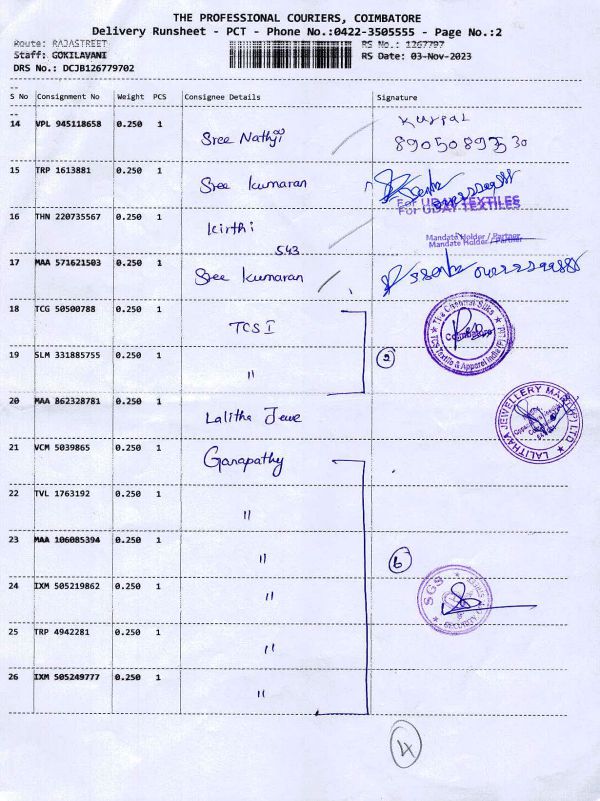 THE PROFESSIONAL COURIERS, COIMBATORE
Delivery Runsheet - PCT - Phone No.:0422-3505555 - Page No.:2
Route: RAJASTREET
RS No.: 1267797
Staff: GOKILAVANI
RS Date: 03-Nov-2023
DRS No.: DCJB126779702
--
S No Consignment No Weight PCS Consignee Details Signature
--
14 VPL 945118658 0.250 1 Sree Nathji
8905089330
15 TRP 1613881 0.250 1 Sree Kumaran
For UDAY TEXTILES
For UDAY TEXTILES
16 THN 220735567 0.250 1 Kirthi
Mandate Holder / Partner
Mandate Holder / Partner
543
17 MAA 571621503 0.250 1 Sree Kumaran
18 TCG 50500788 0.250 1 TCS I
The Chennai Silks
Coimbatore
TCS Textile & Apparel India (P) LTD
19 SLM 331885755 0.250 1 "
2
20 MAA 862328781 0.250 1 Lalitha Jewe
LALITHAA JEWELLERY MART (P) LTD
21 VCM 5039865 0.250 1 Ganapathy
22 TVL 1763192 0.250 1 "
23 MAA 106085394 0.250 1 "
6
24 IXM 505219862 0.250 1 "
SGS
25 TRP 4942281 0.250 1 "
26 IXM 505249777 0.250 1 "
4